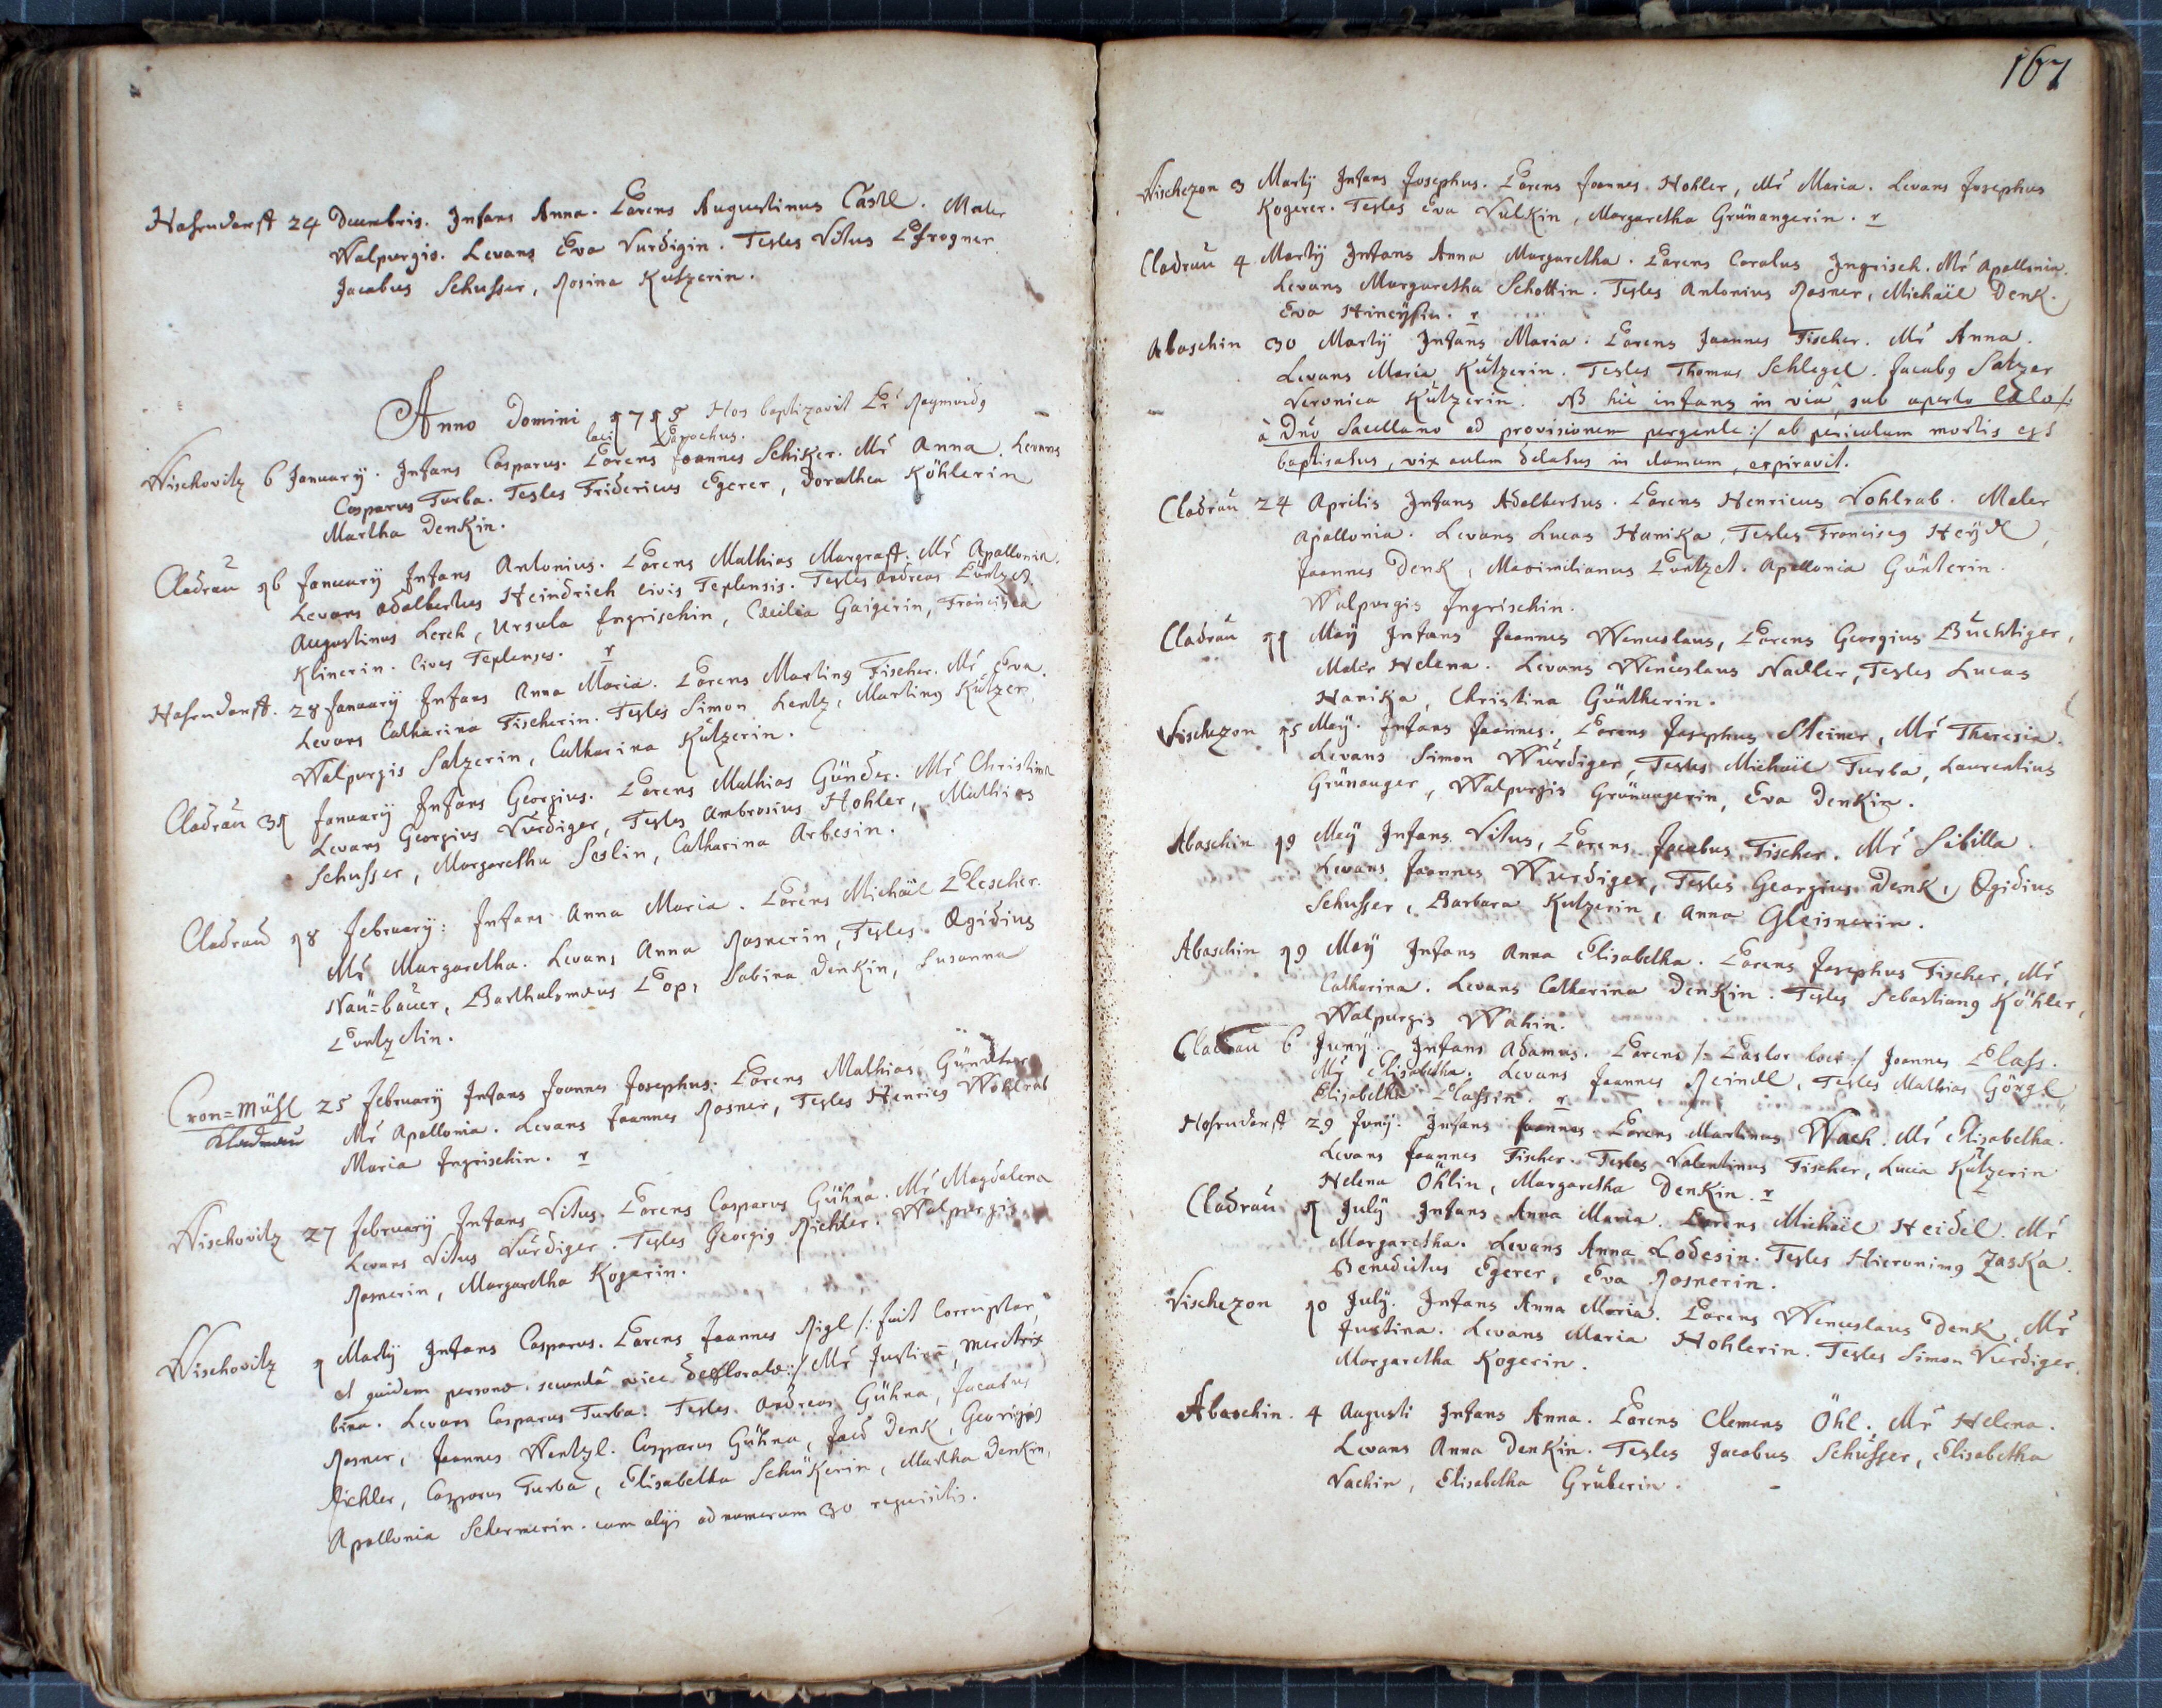 Hahndorff 24 Decembris. Infans Anna. Parens Augustinus Castl. Mater
Walpurgis. Levans Eva Vurdigin. Testes Vitus Pfrogner
Jacobus Schusser, Rosina Kutzerin.
Anno Domini 1715 Hos baptizavit Pr Raymundg
loci Parochus.
Wischovitz 6 January. Infans Casparus. Parens Joannes Schiker. Mr Anna. Levans
Casparus Turba. Testes Fridericus Egerer, Dorothea Köhlerin
Martha Denkin.
Cladrau 16 January Infans Antonius. Parens Mathias Margraff. Mr Apollonia.
Levans Adalbertus Heindrich civis Teplensis. Testes Andreas
Augustinus Lerch, Ursula Ingrischin, Cæcilia Gaigerin, Francisca
Klinerin. Cives Teplenses. r
Hahndorff. 28 January Infans Anna Maria. Parens Marting Fischer. Mr Eva.
Levans Catharina Fischerin. Testes Simon Lentz, Marting Kutzer
Walpurgis Salzerin, Catharina Kutzerin.
Cladrau 31 January Infans Georgius. Parens Mathias Günder. Mr Christina
Levans Georgius Vurdiger, Testes Ambrosius Hohler, Mathias
Schusser, Margaretha Seslin, Catharina Arbesin.
Cladrau 18 February: Infans Anna Maria. Parens Michäel Plescher.
Mr Margaretha. Levans Anna Rosnerin, Testes Ægidius
Naü=bauer, Bartholomæus Pop, Sabina Denkin, Susanna
Puntzctin.
Cron=Mühl 25 February Infans Joannes Josephus. Parens Mathias Gündter
Kladrau Mr Apollonia. Levans Joannes Rosner, Testes Henricg Wohlrab
Maria Ingrischin. r
Wischovitz 27 February Infans Vitus. Parens Casparus Gühna. Mr Magdalena
Levans Vitus Vurdiger. Testes Georgig Richter. Walpurgis
Rosnerin, Margaretha Kogerin.
Wischovitz 1 Marty Infans Casparus. Parens Joannes Rigl /: fuit Corruptor,
et quidem personæ secundâ vice defloratæ :/ Mr Justina, meretrix
bina. Levans Casparus Turba. Testes Andreas Gühna, Jacobus
Rosner, Joannes Wentzl. Casparus Gühna, Denk, Georgius
Richter, Casparus Turba, Elisabetha Schükerin, Martha Denkin,
Apollonia Schermerin. cum alys ad numerum 30 requisitis.
167
Vischezon 3 Marty Infans Josephus. Parens Joannes Hohler, Mr Maria. Levans Josephus
Kogerer. Testes Eva Vulkin, Margaretha Grünangerin. r
Cladrau 4 Marty Infans Anna Margaretha. Parens Carolus Ingrisch. Mr Apollonia.
Levans Margaretha Schottin. Testes Antonius Rosner, Michäel Denk.
Eva r
Abaschin 30 Marty Infans Maria. Parens Joannes Fischer. Mr Anna.
Levans Maria Kutzerin. Testes Thomas Schlegel. Jacobg Salzer
Veronica Kutzerin. NB hic infans in viâ, sub aperto Cælo /:
à Dno Sacellano ad provisionem pergente :/ ob periculum mortis est
baptisatus, vix autem delatus in domum, expiravit.
Cladrau 24 Aprilis Infans Adalbertus. Parens Henricus Vohlrab. Mater
Apollonia. Levans Lucas Hanika, Testes Franciscg Heydl,
Joannes Denk, Maximilianus Puntzct. Apollonia Günterin.
Walpurgis Ingrischin.
Cladrau 11 May Infans Joannes Wenceslaus, Parens Georgius Büchtiger,
Mater Helena. Levans Wenceslaus Nadler, Testes Lucas
Hanika, Christina Güntherin.
Vischezon 15 May. Infans Joannes. Parens Josephus Steiner, Mr Theresia.
Levans Simon Würdiger, Testes Michäel Turba, Laurentius
Grünanger, Walpurgis Grünangerin, Eva Denkin.
Abaschin 19 May Infans Vitus, Parens Jacobus Fischer. Mr Sibilla.
Levans Joannes Wurdiger, Testes Georgius Denk, Ægidius
Schusser, Barbara Kutzerin, Anna Gleisnerin.
Abaschin 19 May Infans Anna Elisabetha. Parens Josephus Fischer, Mr
Catharina. Levans Catharina Denkin. Testes Sebastiang Köhler,
Walpurgis Wahin.
Cladrau 6 Juny. Infans Adamus. Parens /: Pastor loci :/ Joannes Plass.
Mr Elisabetha. Levans Joannes Reindl, Testes Mathias Görgl,
Elisabetha Plassin. r
Hahndorff 29 Juny. Infans Joannes. Parens Martinus Wach. Mr Elisabetha.
Levans Joannes Fischer. Testes Valentinus Fischer, Lucia Kutzerin
Helena Öhlin, Margaretha Denkin. r
Cladrau 1 July Infans Anna Maria. Parens Michäel Heidel. Mr
Margaretha. Levans Anna Lodesin. Testes Hieronimg Zaska.
Benedictus Egerer, Eva Rosnerin.
Vischezon 10 July. Infans Anna Maria. Parens Wenceslaus Denk, Mr
Justina. Levans Maria Hohlerin. Testes Simon Vurdiger.
Margaretha Kogerin.
Abaschin. 4 Augusti Infans Anna. Parens Clemens Öhl. Mr Helena.
Levans Anna Denkin. Testes Jacobus Schusser, Elisabetha
Vachin, Elisabetha Gruberin.